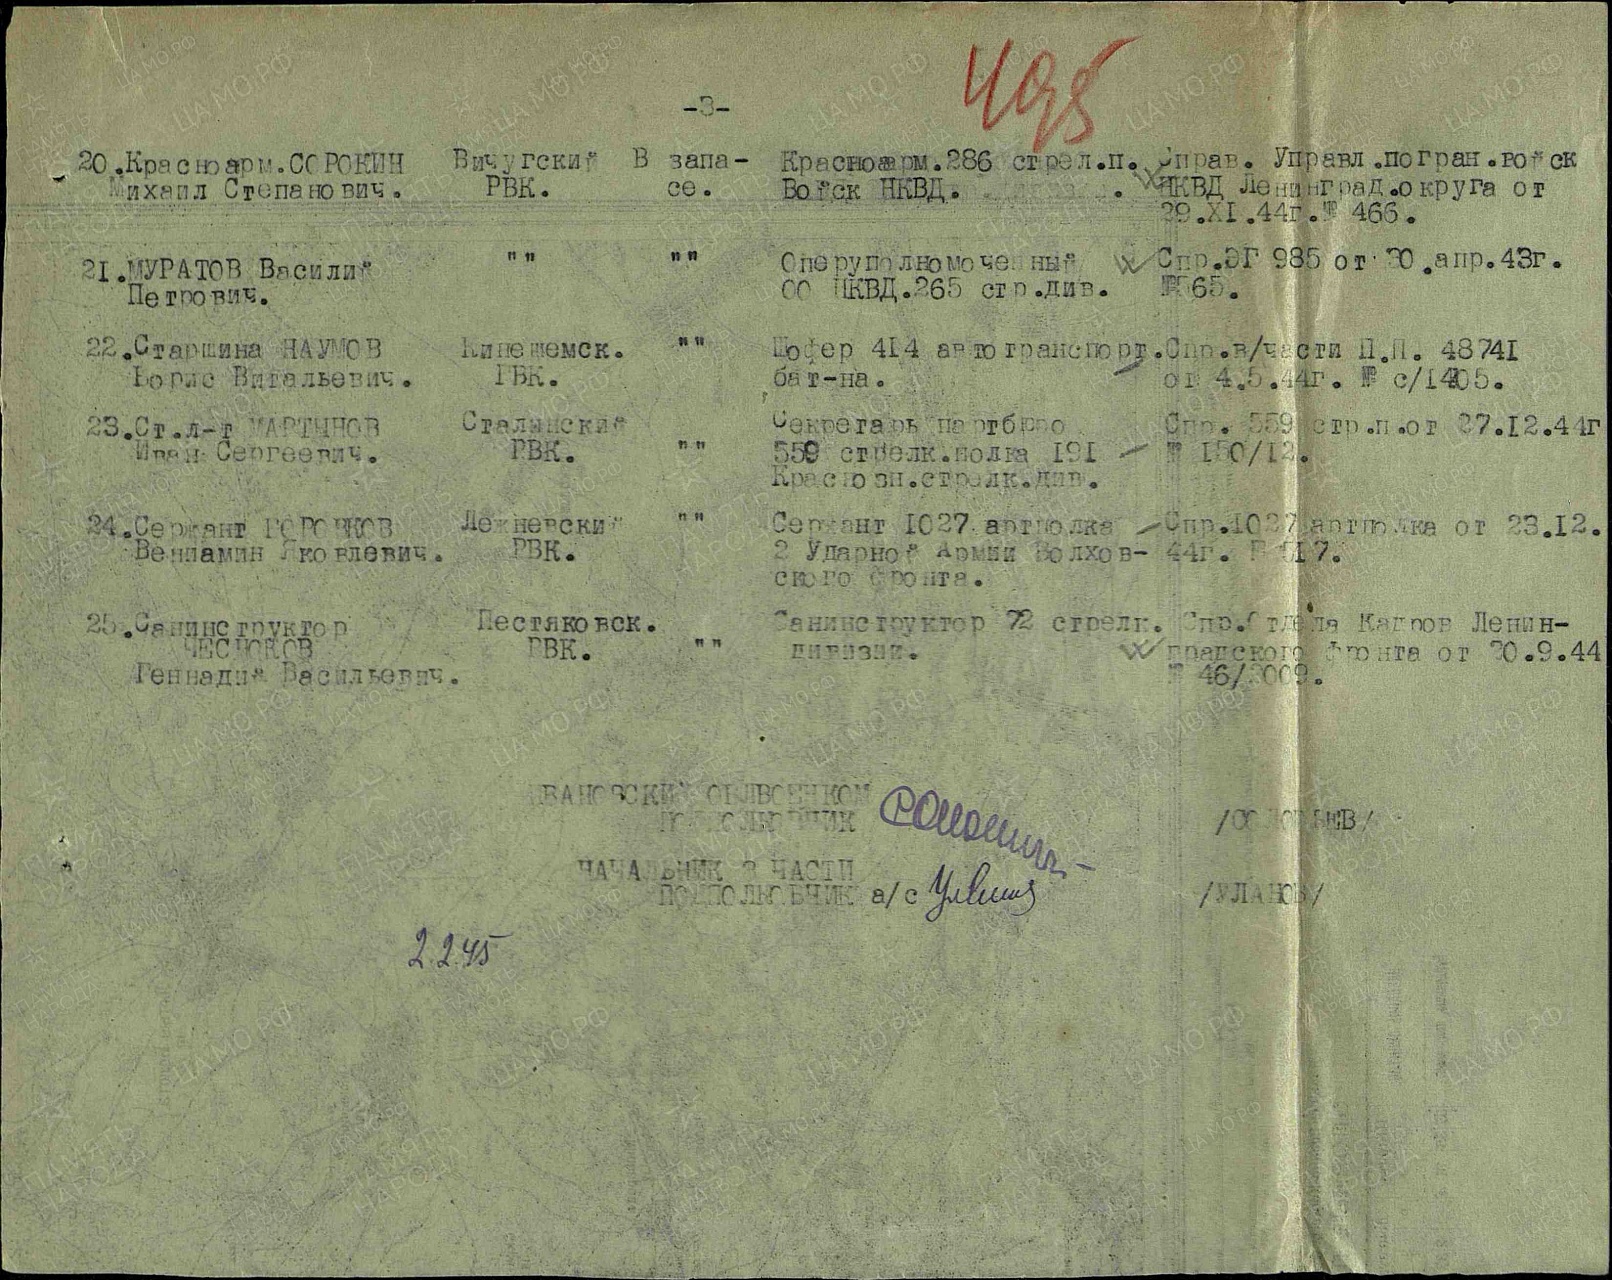 -3-
495
20.Красноарм.СОРОКИН Вичугский В запа- Красноарм.286 стрел.п. Справ. Управл.погран.войск
Михаил Степанович. РВК. се. Войск НКВД. НКВД Ленинград.округа от
29.XI.44г.№ 466.
21.МУРАТОВ Василий "" "" Оперуполномоченный Спр.ЭГ 985 от 30.апр.43г.
Петрович. ОО НКВД.265 стр.див. №565.
22.Старшина НАУМОВ Кинешемск. "" Шофер 414 автотранспорт. Спр.в/части П.П. 48741
Борис Витальевич. РВК. бат-на. от 4.5.44г. № с/1405.
23.Ст.л-т МАРТЫНОВ Сталинский Секретарь партбюро Спр. 559 стр.п.от 27.12.44г
Иван Сергеевич. РВК. "" 559 стрелк.полка 191 № 150/12.
Краснозн.стрелк.див.
24.Сержант Лежневский "" Сержант 1027 артполка Спр.1027 артполка от 23.12.
Вениамин Яковлевич. РВК. 2 Ударной Армии Волхов- 44г.
ского фронта.
25.Санинструктор Пестяковск. Санинструктор 72 стрелк. Спр.Отдела Кадров Ленин-
ЧЕСНОКОВ РВК. "" дивизии. градского фронта от 30.9.44
Геннадий Васильевич. № 46/
ИВАНОВСКИЙ ОБЛВОЕНКОМ
ПОДПОЛКОВНИК /СОЛОВЬЕВ/
НАЧАЛЬНИК 3 ЧАСТИ
ПОДПОЛКОВНИК а/с /УЛАНОВ/
2.2.45